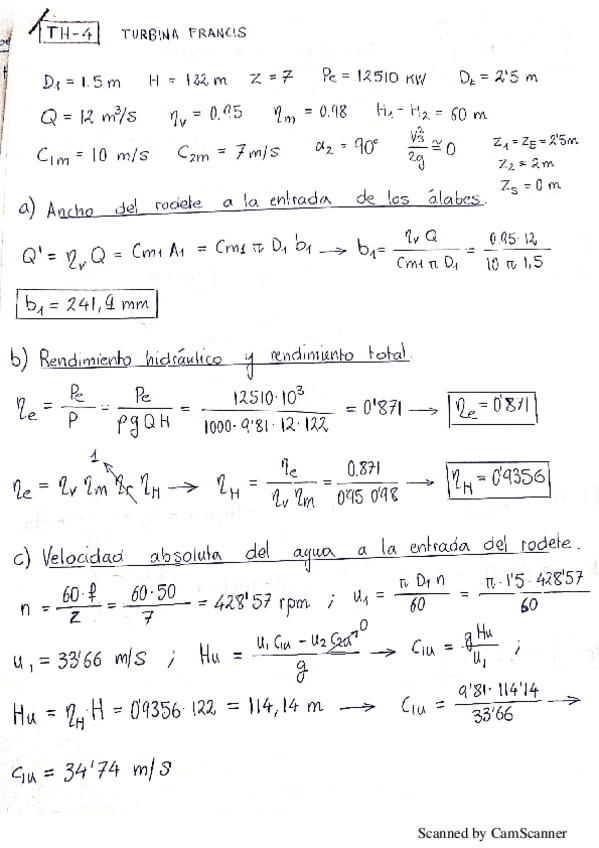 TH-4 TURBINA FRANCIS
D1 = 1.5 m H = 122 m Z = 7 Pe = 12510 KW DE = 2'5 m
Q = 12 m³/s ηv = 0.95 ηm = 0.98 H1 - H2 = 60 m
C1m = 10 m/s C2m = 7 m/s α2 = 90° V3²/2g ≅ 0 Z1 = ZE = 2'5m
Z2 = 2m
ZS = 0 m
a) Ancho del rodete a la entrada de los álabes.
Q' = ηv Q = Cm1 A1 = Cm1 π D1 b1 → b1 = ηv Q / Cm1 π D1 = 0.95·12 / 10 π 1,5
b1 = 241,9 mm
b) Rendimiento hidráulico y rendimiento total.
ηe = Pe/P = Pe/ρgQH = 12510·10³ / 1000·9'81·12·122 = 0'871 → ηe = 0'871
1
ηe = ηv ηm ηr ηH → ηH = ηe / ηv ηm = 0.871 / 0'95 0'98 → ηH = 0'9356
c) Velocidad absoluta del agua a la entrada del rodete.
n = 60·f / Z = 60·50 / 7 = 428'57 rpm ; u1 = π D1 n / 60 = π·1'5·428'57 / 60
u1 = 33'66 m/s ; Hu = u1 C1u - u2 C2u 0 / g → C1u = g Hu / u1 ;
Hu = ηH·H = 0'9356·122 = 114,14 m → C1u = 9'81·114'14 / 33'66 →
C1u = 34'74 m/s
Scanned by CamScanner